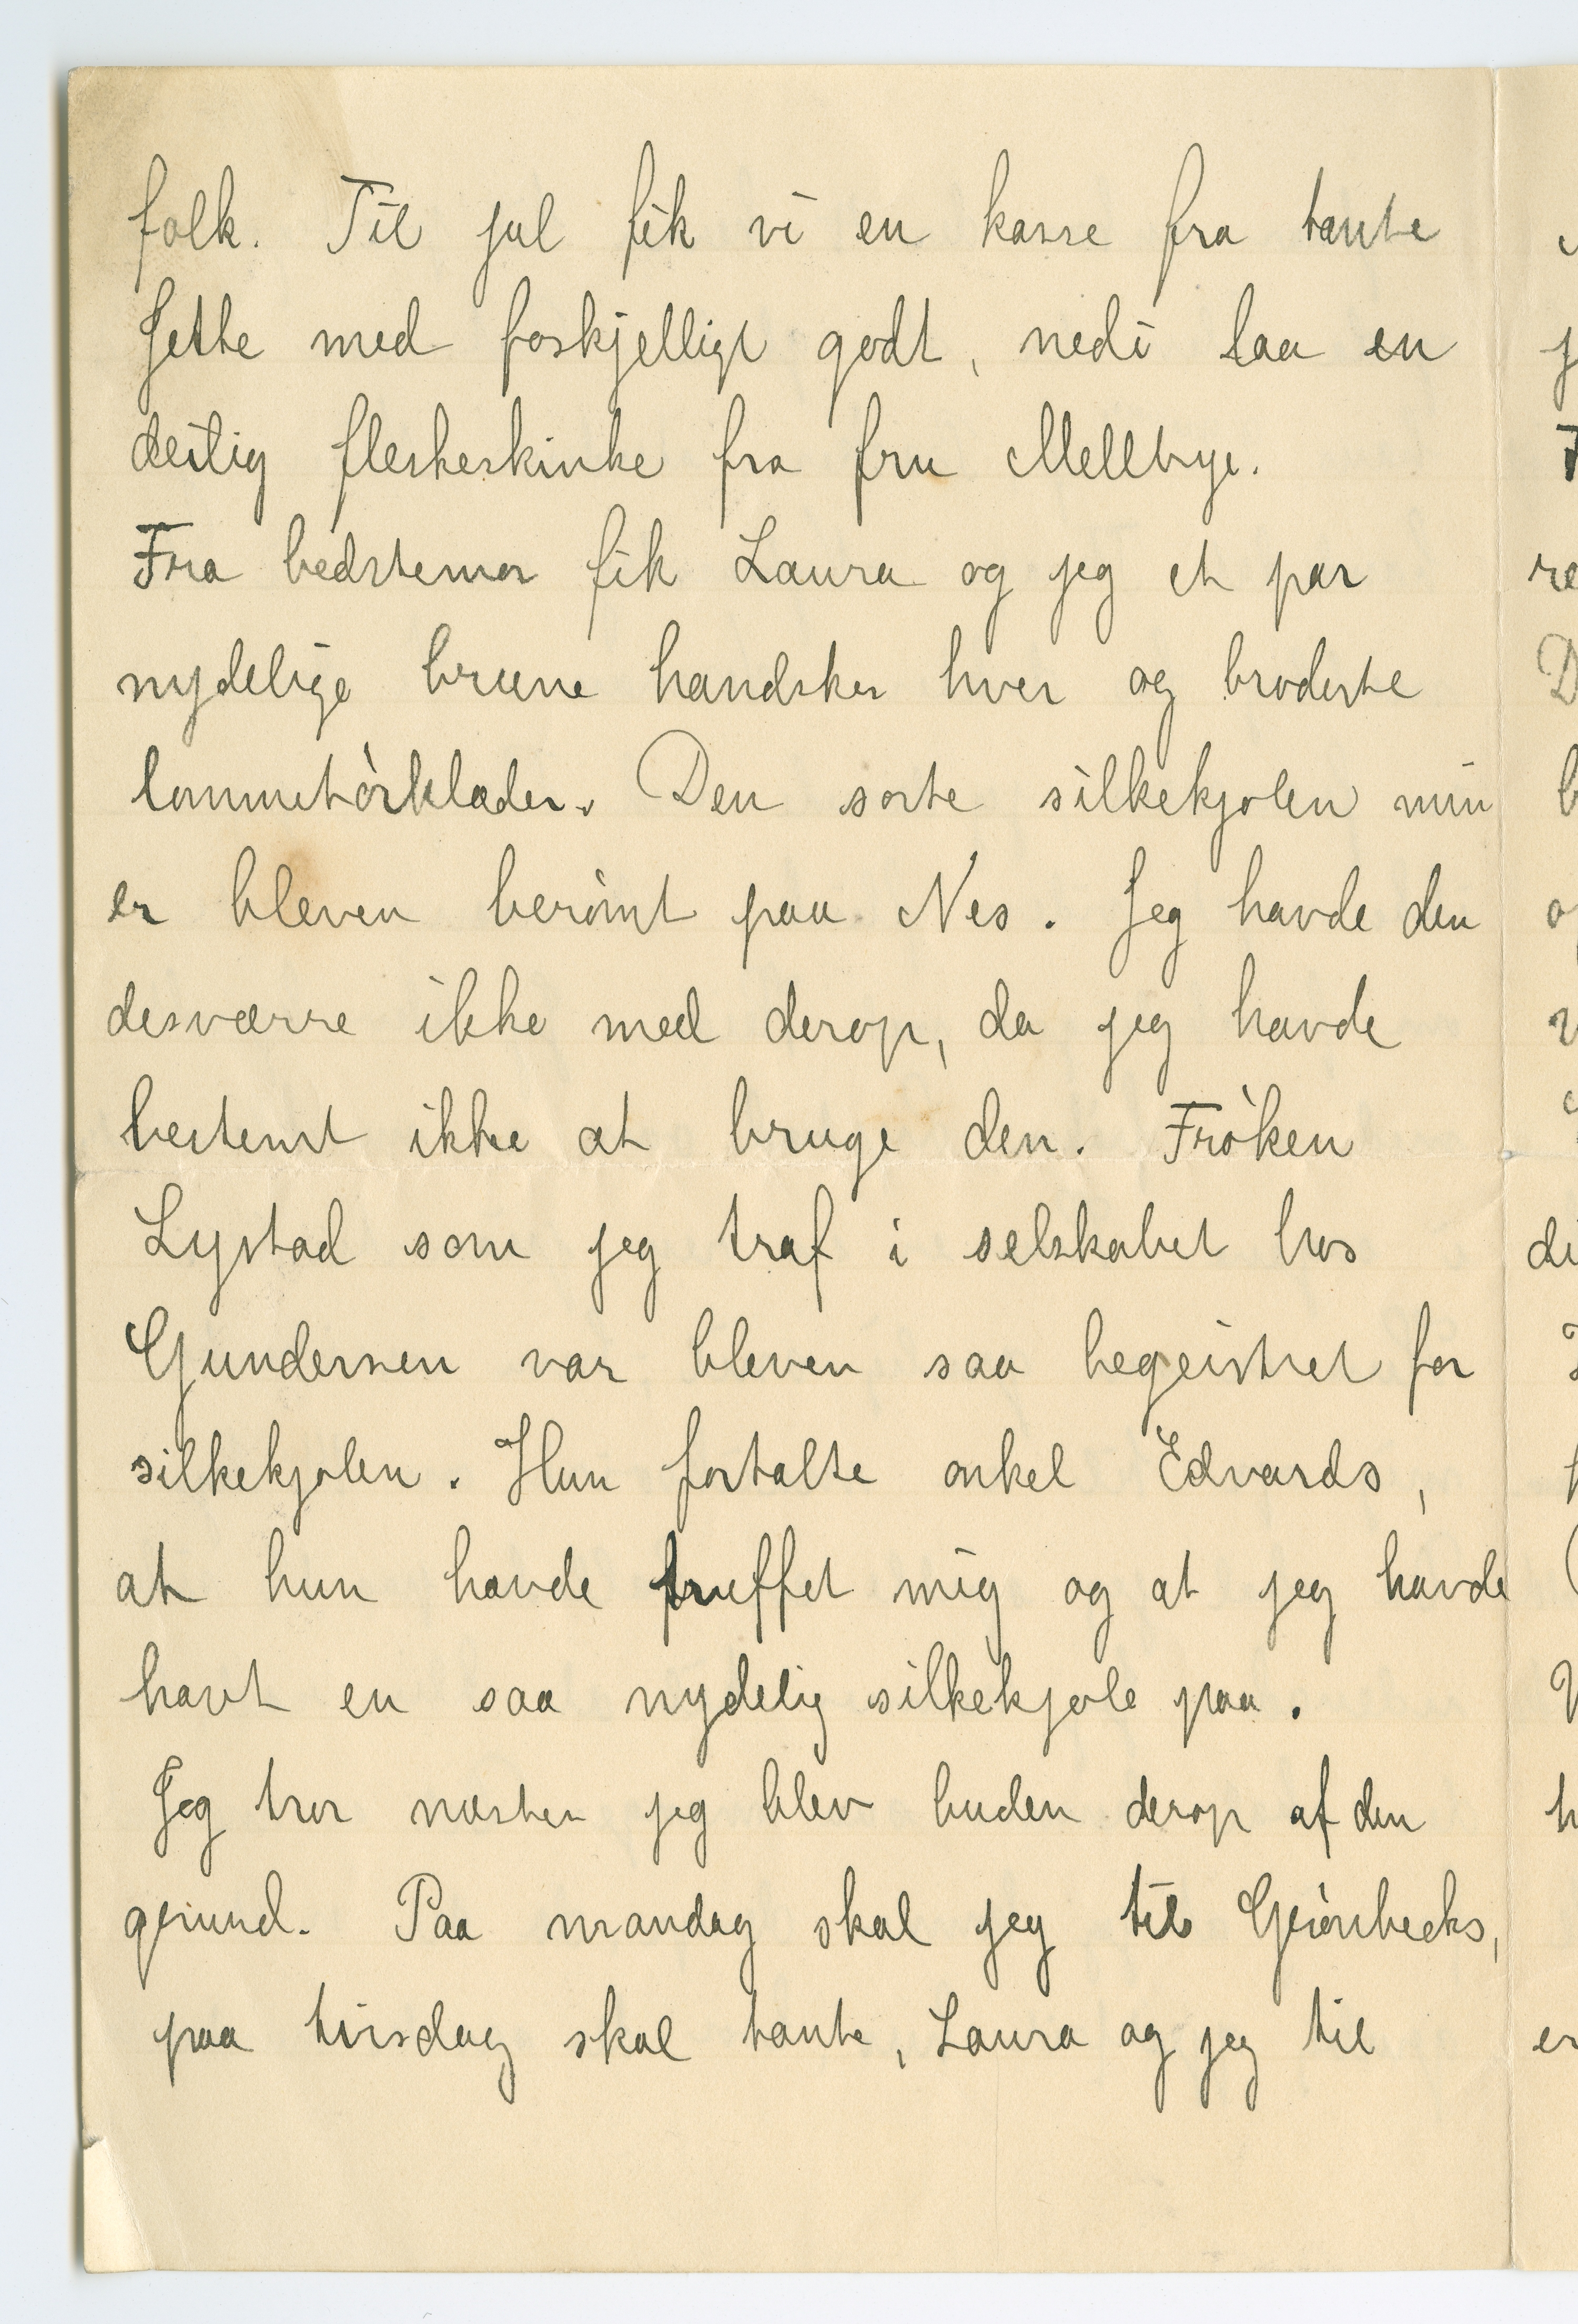 folk. Til jul fik vi en kasse fra tante
Jette med forskjelligt godt, nedi laa en
deilig fleskeskinke fra fru Mellbye.
Fra bedstemor fik Laura og jeg et par
nydelige brune handsker hver og broderte
lommetòrklæder. Den sorte silkekjolen min
er bleven beròmt paa Nes. Jeg havde den
desværre ikke med derop, da jeg havde
bestemt ikke at bruge den. Fròken
Lystad som jeg traf i selskabet hos
Gundersen var bleven saa begeistret for
silkekjolen. Hun fortalte onkel Edvards,
at hun havde truffet mig og at jeg havde
havt en saa nydelig silkekjole paa.
Jeg tror næsten jeg blev buden derop af den
grund. Paa mandag skal jeg til Grònbecks,
paa tirsdag skal tante, Laura og jeg til